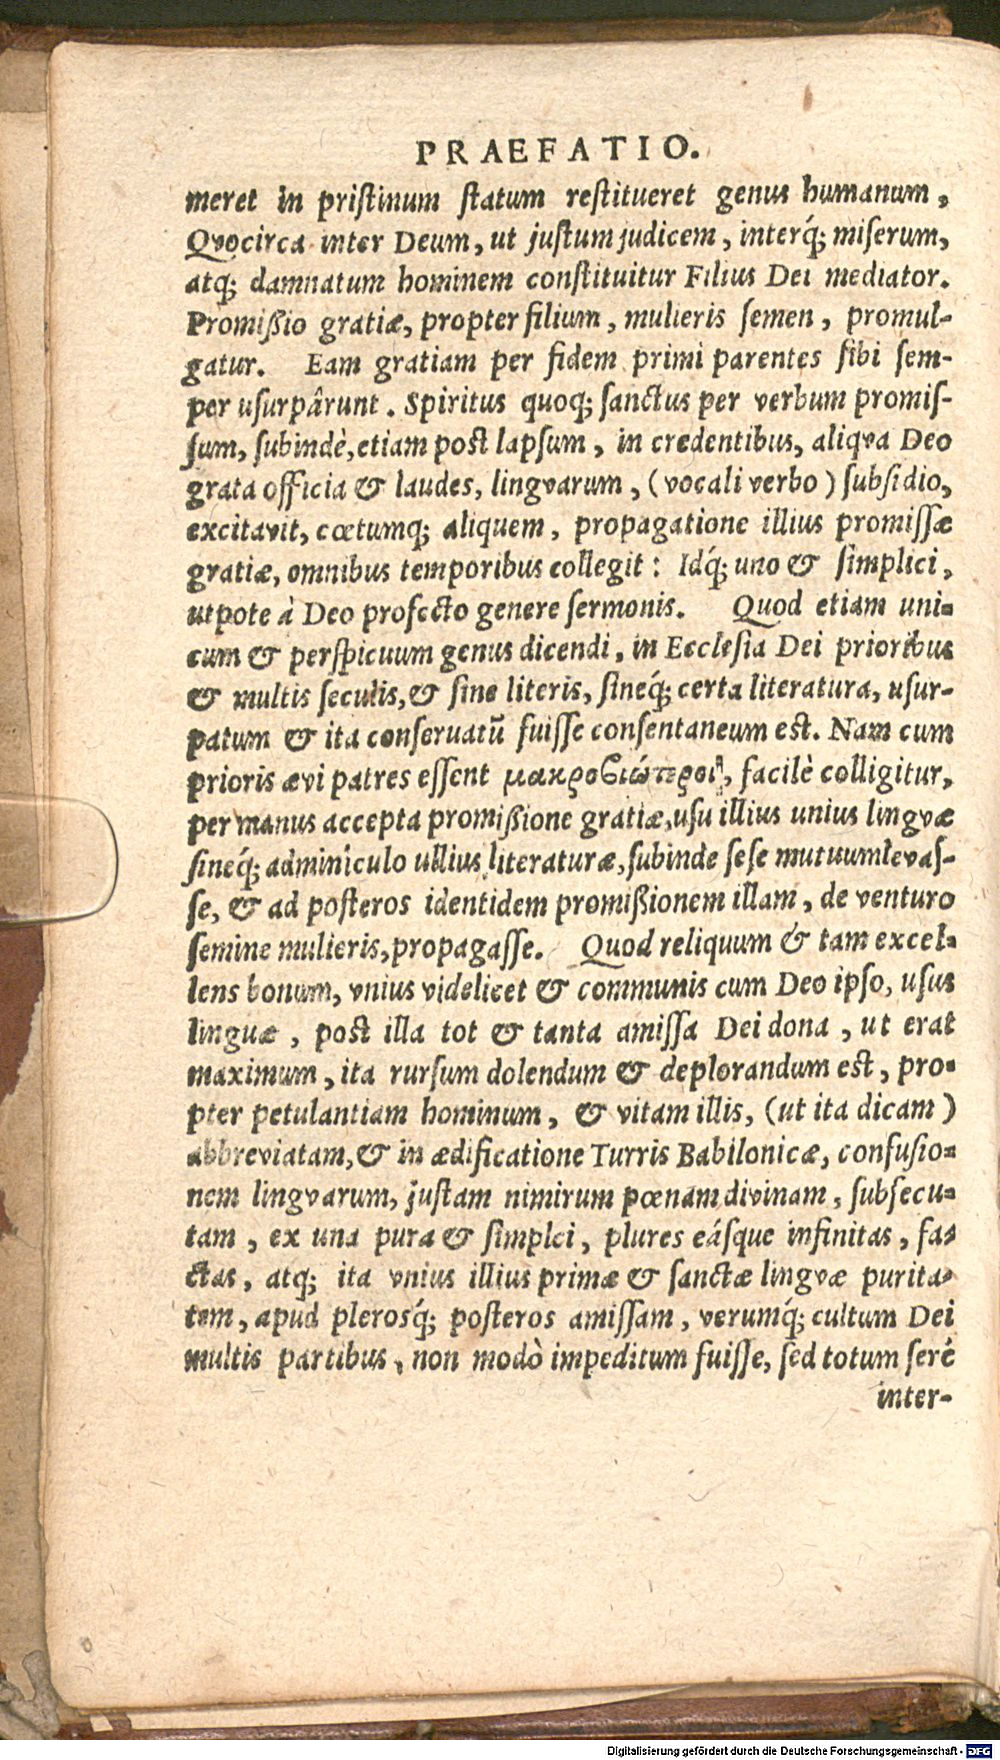 PRAEFATIO.
meret in priſtinum ſtatum reſtitueret genus humanum,
Qvocirca inter Deum, ut juſtum judicem, interq́; miſerum,
atq; damnatum hominem conſtituitur Filius Dei mediator.
Promißio gratiæ, propter filium, mulieris ſemen, promul-
gatur. Eam gratiam per fidem primi parentes ſibi ſem-
per uſurpârunt. Spiritus quoq; ſanctus per verbum promiſ-
ſum, ſubindè, etiam poſt lapſum, in credentibus, aliqva Deo
grata officia & laudes, lingvarum, (vocali verbo) ſubſidio,
excitavit, cœtumq; aliquem, propagatione illius promiſſæ
gratiæ, omnibus temporibus collegit: Idq́; uno & ſimplici,
utpote à Deo profecto genere ſermonis. Quod etiam uni-
cum & perſpicuum genus dicendi, in Eccleſia Dei prioribus
& multis ſeculis, & ſine literis, ſineq́; certa literatura, uſur-
patum & ita conſervatũ fuiſſe conſentaneum est. Nam cum
prioris ævi patres eſſent μακροβιώτεροι, facilè colligitur,
per manus accepta promißione gratiæ, uſu illius unius lingvæ
ſineq́; adminiculo ullius literaturæ, ſubinde ſeſe mutuum levaſ-
ſe, & ad poſteros identidem promißionem illam, de venturo
ſemine mulieris, propagaſſe. Quod reliquum & tam excel-
lens bonum, vnius videlicet & communis cum Deo ipſo, uſus
linguæ, poſt illa tot & tanta amiſſa Dei dona, ut erat
maximum, ita rurſum dolendum & deplorandum est, pro-
pter petulantiam hominum, & vitam illis, (ut ita dicam)
abbreviatam, & in ædificatione Turris Babilonicæ, confuſio-
nem lingvarum, juſtam nimirum pœnam divinam, ſubſecu-
tam, ex una pura & ſimplci, plures eáſque infinitas, fa-
ctas, atq; ita vnius illius primæ & ſanctæ lingvæ purita-
tem, apud plerosq́; poſteros amiſſam, verumq́; cultum Dei
multis partibus, non modò impeditum fuiſſe, ſed totum ferè
inter-
Digitalisierung gefördert durch die Deutsche Forschungsgemeinschaft - DFG